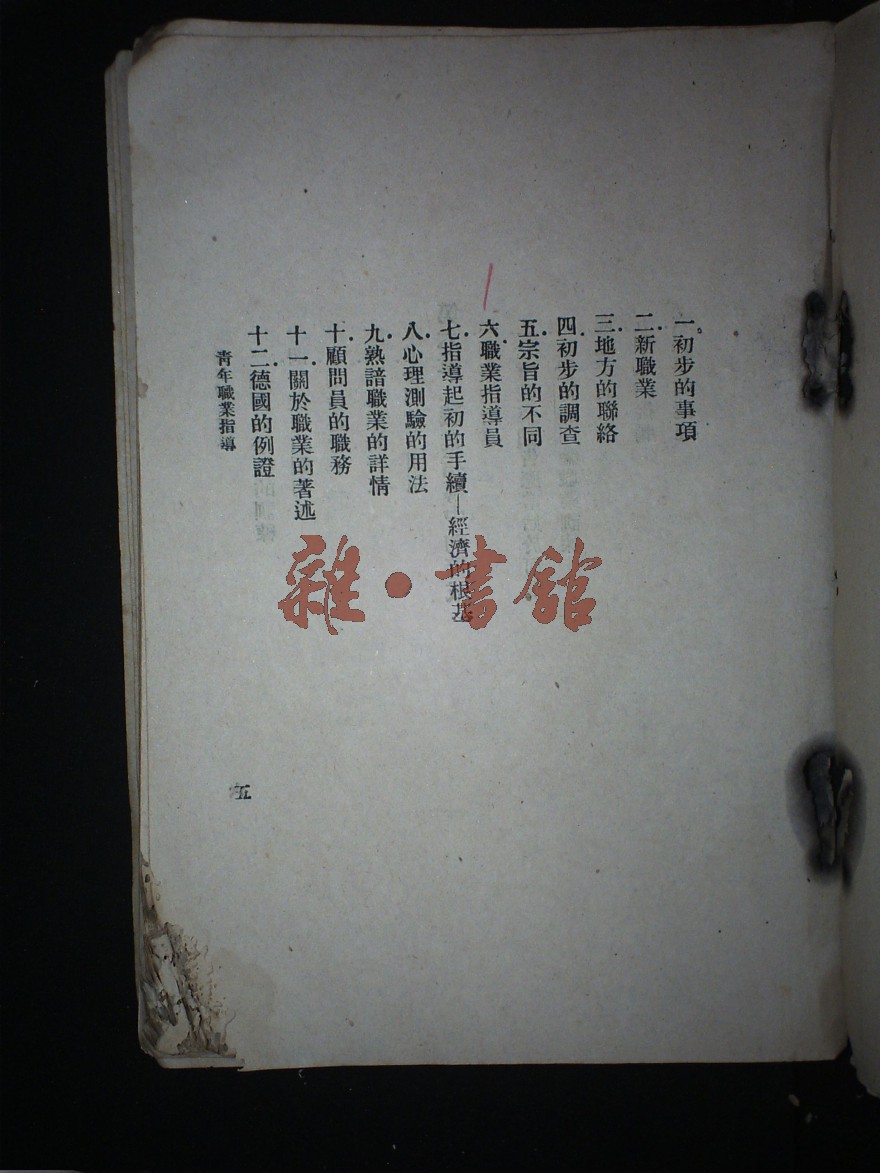 一.初步的事項
二.新職業
三.地方的聯絡
四.初步的調查
五.宗旨的不同
六.職業指導員
七.指導起初的手續—經濟的根基
八.心理測驗的用法
九.熟諳職業的詳情
十.顧問員的職務
十一.關於職業的著述
十二.德國的例證
青年職業指導
五
雜·書館